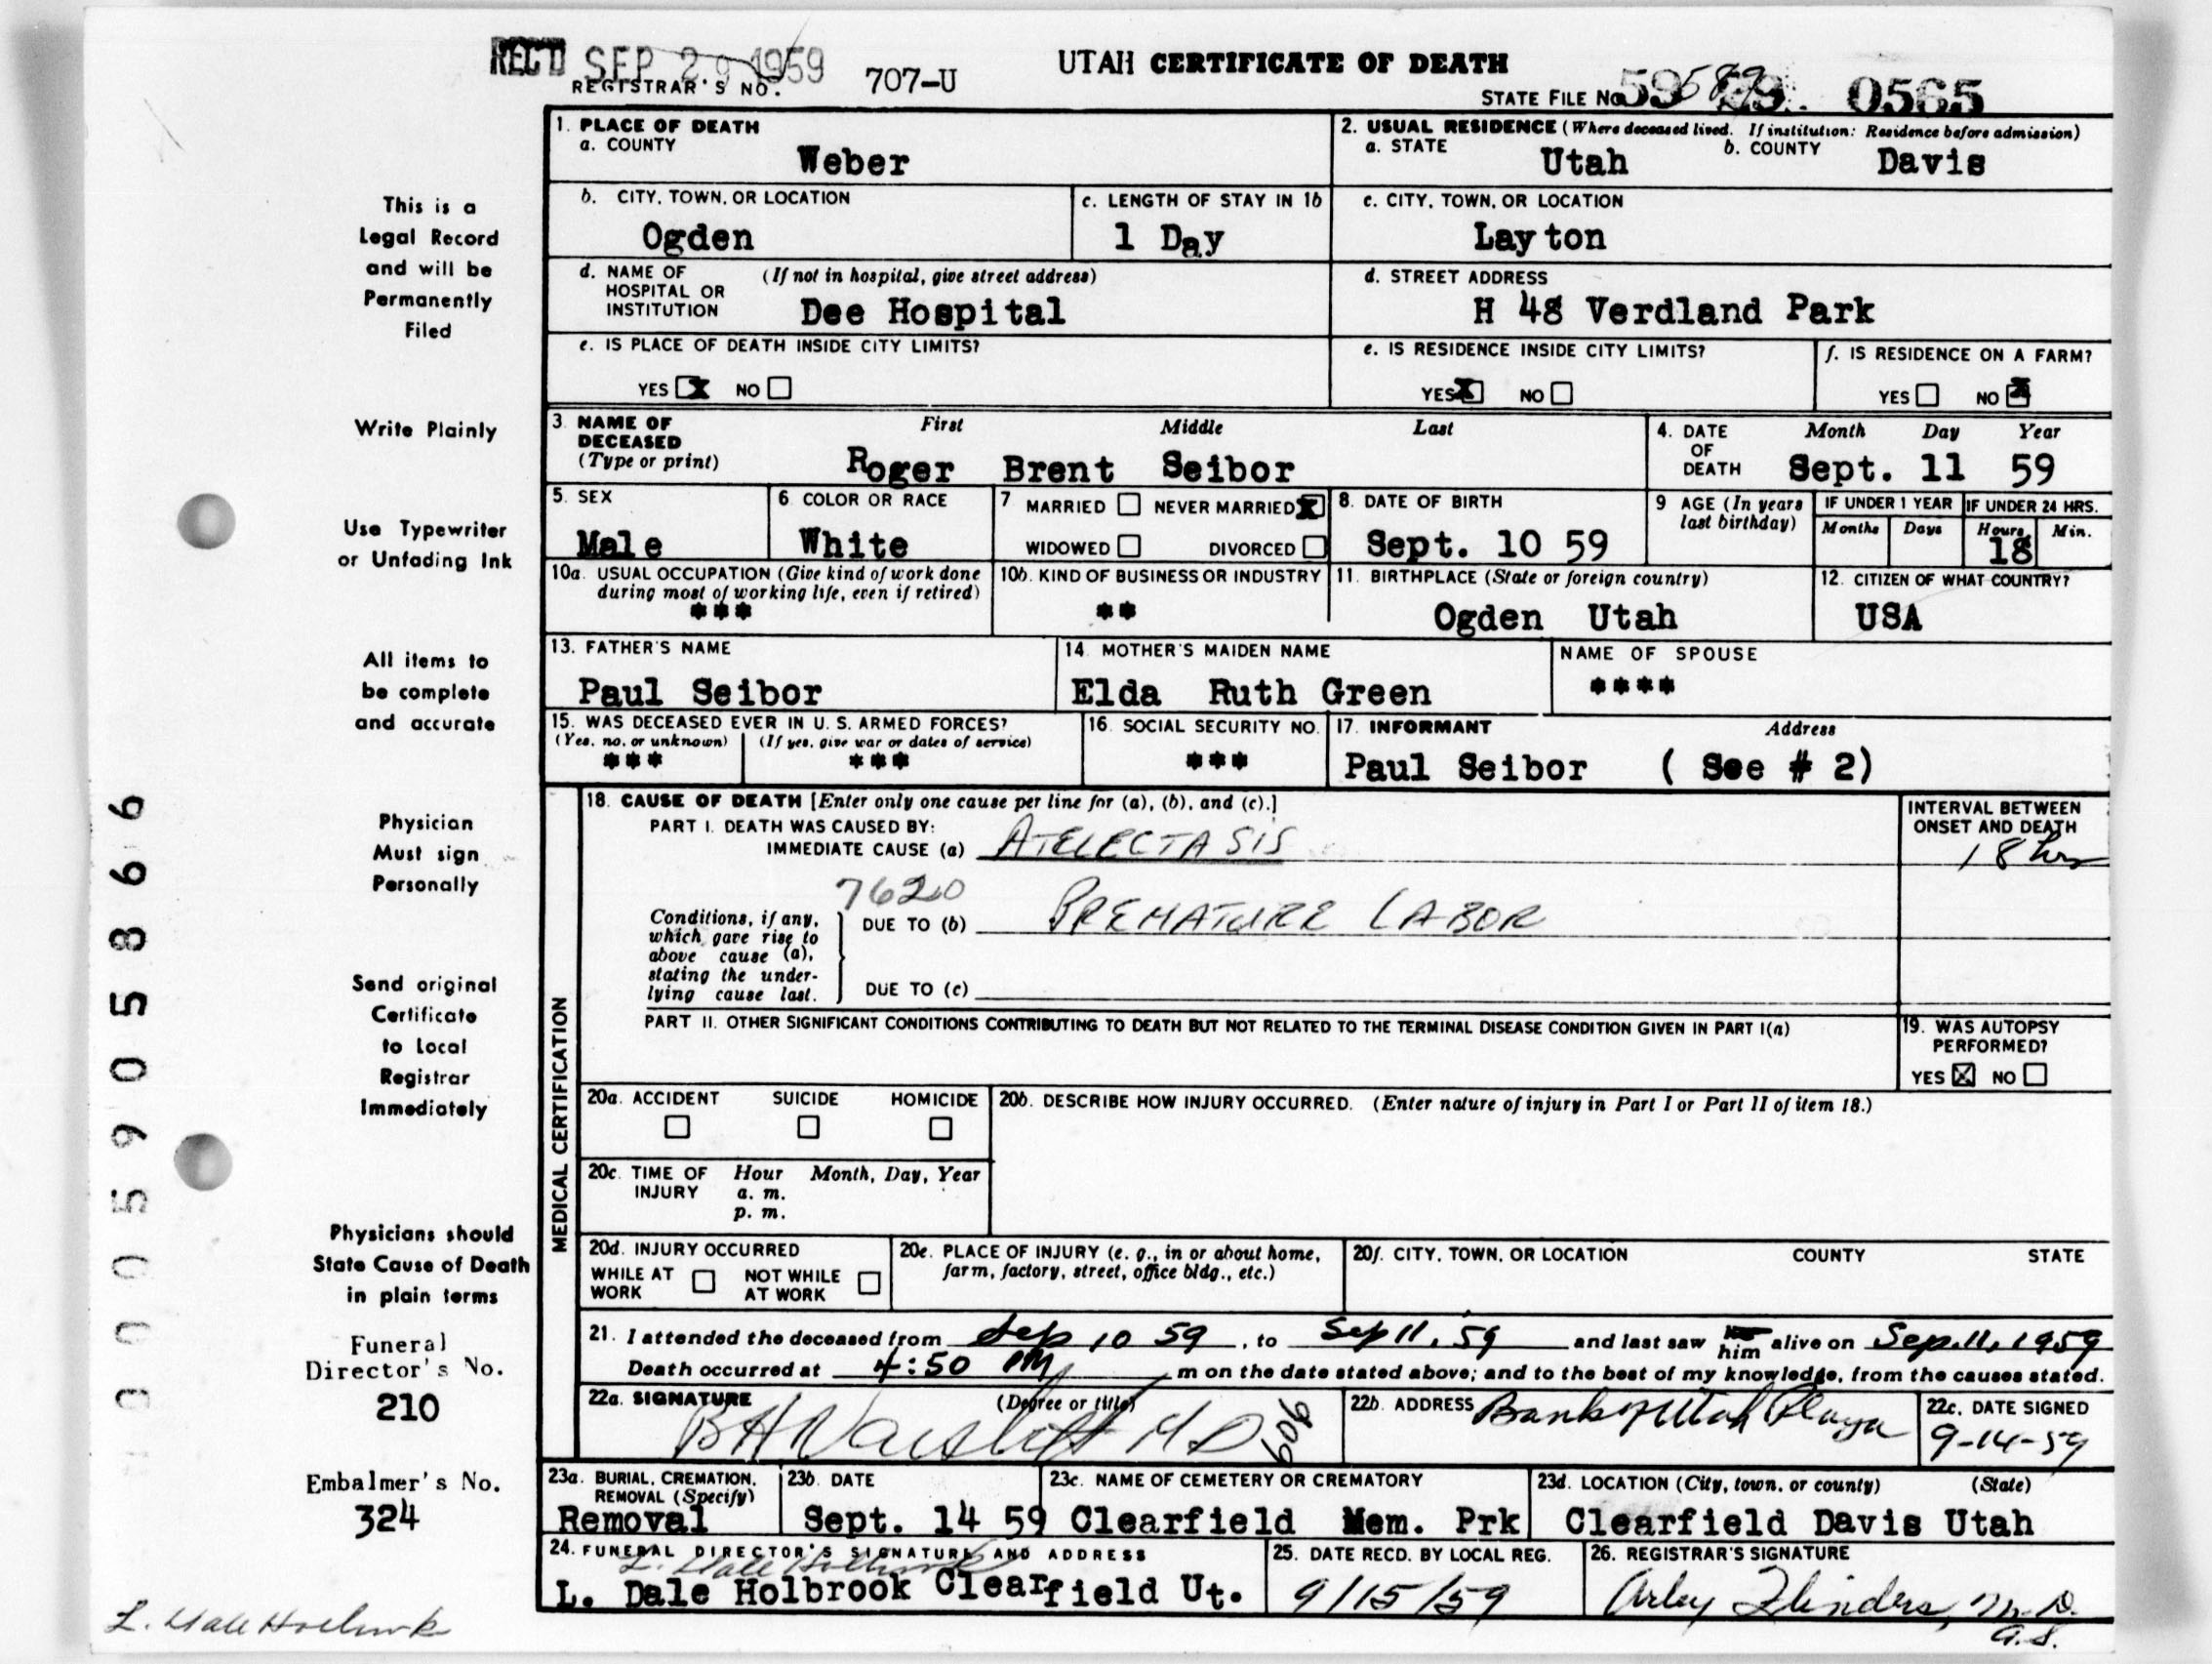 REC'D SEP 29 1959
REGISTRAR'S NO. 707-U
UTAH CERTIFICATE OF DEATH
STATE FILE No 59 0565
This is a
Legal Record
and will be
Permanently
Filed
Write Plainly
Use Typewriter
or Unfading Ink
All items to
be complete
and accurate
Physician
Must sign
Personally
Send original
Certificate
to Local
Registrar
Immediately
Physicians should
State Cause of Death
in plain terms
Funeral
Director's No.
210
Embalmer's No.
324
1. PLACE OF DEATH
a. COUNTY
Weber
2. USUAL RESIDENCE (Where deceased lived. If institution: Residence before admission)
a. STATE Utah b. COUNTY Davis
b. CITY, TOWN, OR LOCATION
Ogden
c. LENGTH OF STAY IN 1b
1 Day
c. CITY, TOWN, OR LOCATION
Layton
d. NAME OF HOSPITAL OR INSTITUTION (If not in hospital, give street address)
Dee Hospital
d. STREET ADDRESS
H 48 Verdland Park
e. IS PLACE OF DEATH INSIDE CITY LIMITS?
YES X NO
e. IS RESIDENCE INSIDE CITY LIMITS?
YES X NO
f. IS RESIDENCE ON A FARM?
YES NO X
3. NAME OF DECEASED (Type or print) First Middle Last
Roger Brent Seibor
4. DATE OF DEATH Month Day Year
Sept. 11 59
5. SEX
Male
6. COLOR OR RACE
White
7 MARRIED NEVER MARRIED X
WIDOWED DIVORCED
8. DATE OF BIRTH
Sept. 10 59
9 AGE (In years last birthday)
IF UNDER 1 YEAR IF UNDER 24 HRS.
Months Days Hours Min.
18
10a. USUAL OCCUPATION (Give kind of work done during most of working life, even if retired)
***
10b. KIND OF BUSINESS OR INDUSTRY
**
11. BIRTHPLACE (State or foreign country)
Ogden Utah
12. CITIZEN OF WHAT COUNTRY?
USA
13. FATHER'S NAME
Paul Seibor
14. MOTHER'S MAIDEN NAME
Elda Ruth Green
NAME OF SPOUSE
****
15. WAS DECEASED EVER IN U. S. ARMED FORCES?
(Yes, no, or unknown) (If yes, give war or dates of service)
*** ***
16. SOCIAL SECURITY NO.
***
17. INFORMANT Address
Paul Seibor ( See # 2)
MEDICAL CERTIFICATION
18. CAUSE OF DEATH [Enter only one cause per line for (a), (b), and (c).]
PART I. DEATH WAS CAUSED BY:
IMMEDIATE CAUSE (a) ATELECTASIS
INTERVAL BETWEEN
ONSET AND DEATH
18 hrs
7620
Conditions, if any, which gave rise to above cause (a), stating the underlying cause last.
DUE TO (b) PREMATURE LABOR
DUE TO (c)
PART II. OTHER SIGNIFICANT CONDITIONS CONTRIBUTING TO DEATH BUT NOT RELATED TO THE TERMINAL DISEASE CONDITION GIVEN IN PART I(a)
19. WAS AUTOPSY PERFORMED?
YES X NO
20a. ACCIDENT SUICIDE HOMICIDE
20b. DESCRIBE HOW INJURY OCCURRED. (Enter nature of injury in Part I or Part II of item 18.)
20c. TIME OF INJURY Hour Month, Day, Year
a. m.
p. m.
20d. INJURY OCCURRED
WHILE AT WORK NOT WHILE AT WORK
20e. PLACE OF INJURY (e. g., in or about home, farm, factory, street, office bldg., etc.)
20f. CITY, TOWN, OR LOCATION COUNTY STATE
21. I attended the deceased from Sep 10 59, to Sep 11, 59 and last saw him alive on Sep. 11, 1959
Death occurred at 4:50 PM m on the date stated above; and to the best of my knowledge, from the causes stated.
22a. SIGNATURE (Degree or title)
M D
606
22b. ADDRESS
Bank of Utah Plaza
22c. DATE SIGNED
9-14-59
23a. BURIAL, CREMATION, REMOVAL (Specify)
Removal
23b. DATE
Sept. 14 59
23c. NAME OF CEMETERY OR CREMATORY
Clearfield Mem. Prk
23d. LOCATION (City, town, or county) (State)
Clearfield Davis Utah
24. FUNERAL DIRECTOR'S SIGNATURE AND ADDRESS
L. Dale Holbrook
L. Dale Holbrook Clearfield Ut.
25. DATE RECD. BY LOCAL REG.
9/15/59
26. REGISTRAR'S SIGNATURE
Arley Flinders, M. D.
a.s.
L. Dale Holbrook